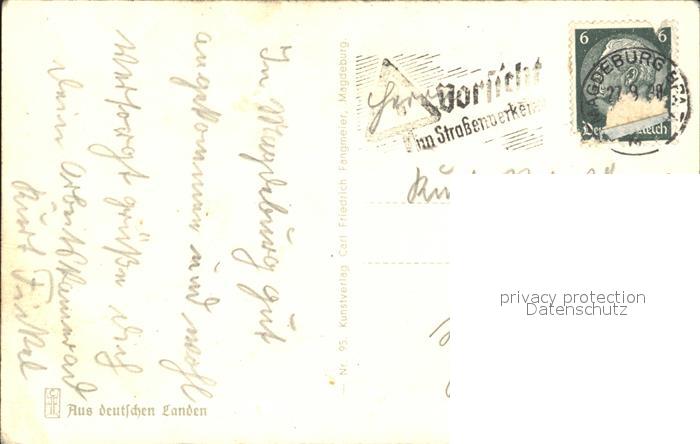 In Magdeburg gut
angekommen und wohl
versorgt grüße Dich
Dein Arbeitskamerad
Kurt Finkel
CFF
Aus deutschen Landen
— Nr. 95. Kunstverlag Carl Friedrich Fangmeier, Magdeburg.
Vorsicht
im Straßenverkehr
6 6
Deutsches Reich
MAGDEBURG
27.9.
Herrn
privacy protection
Datenschutz